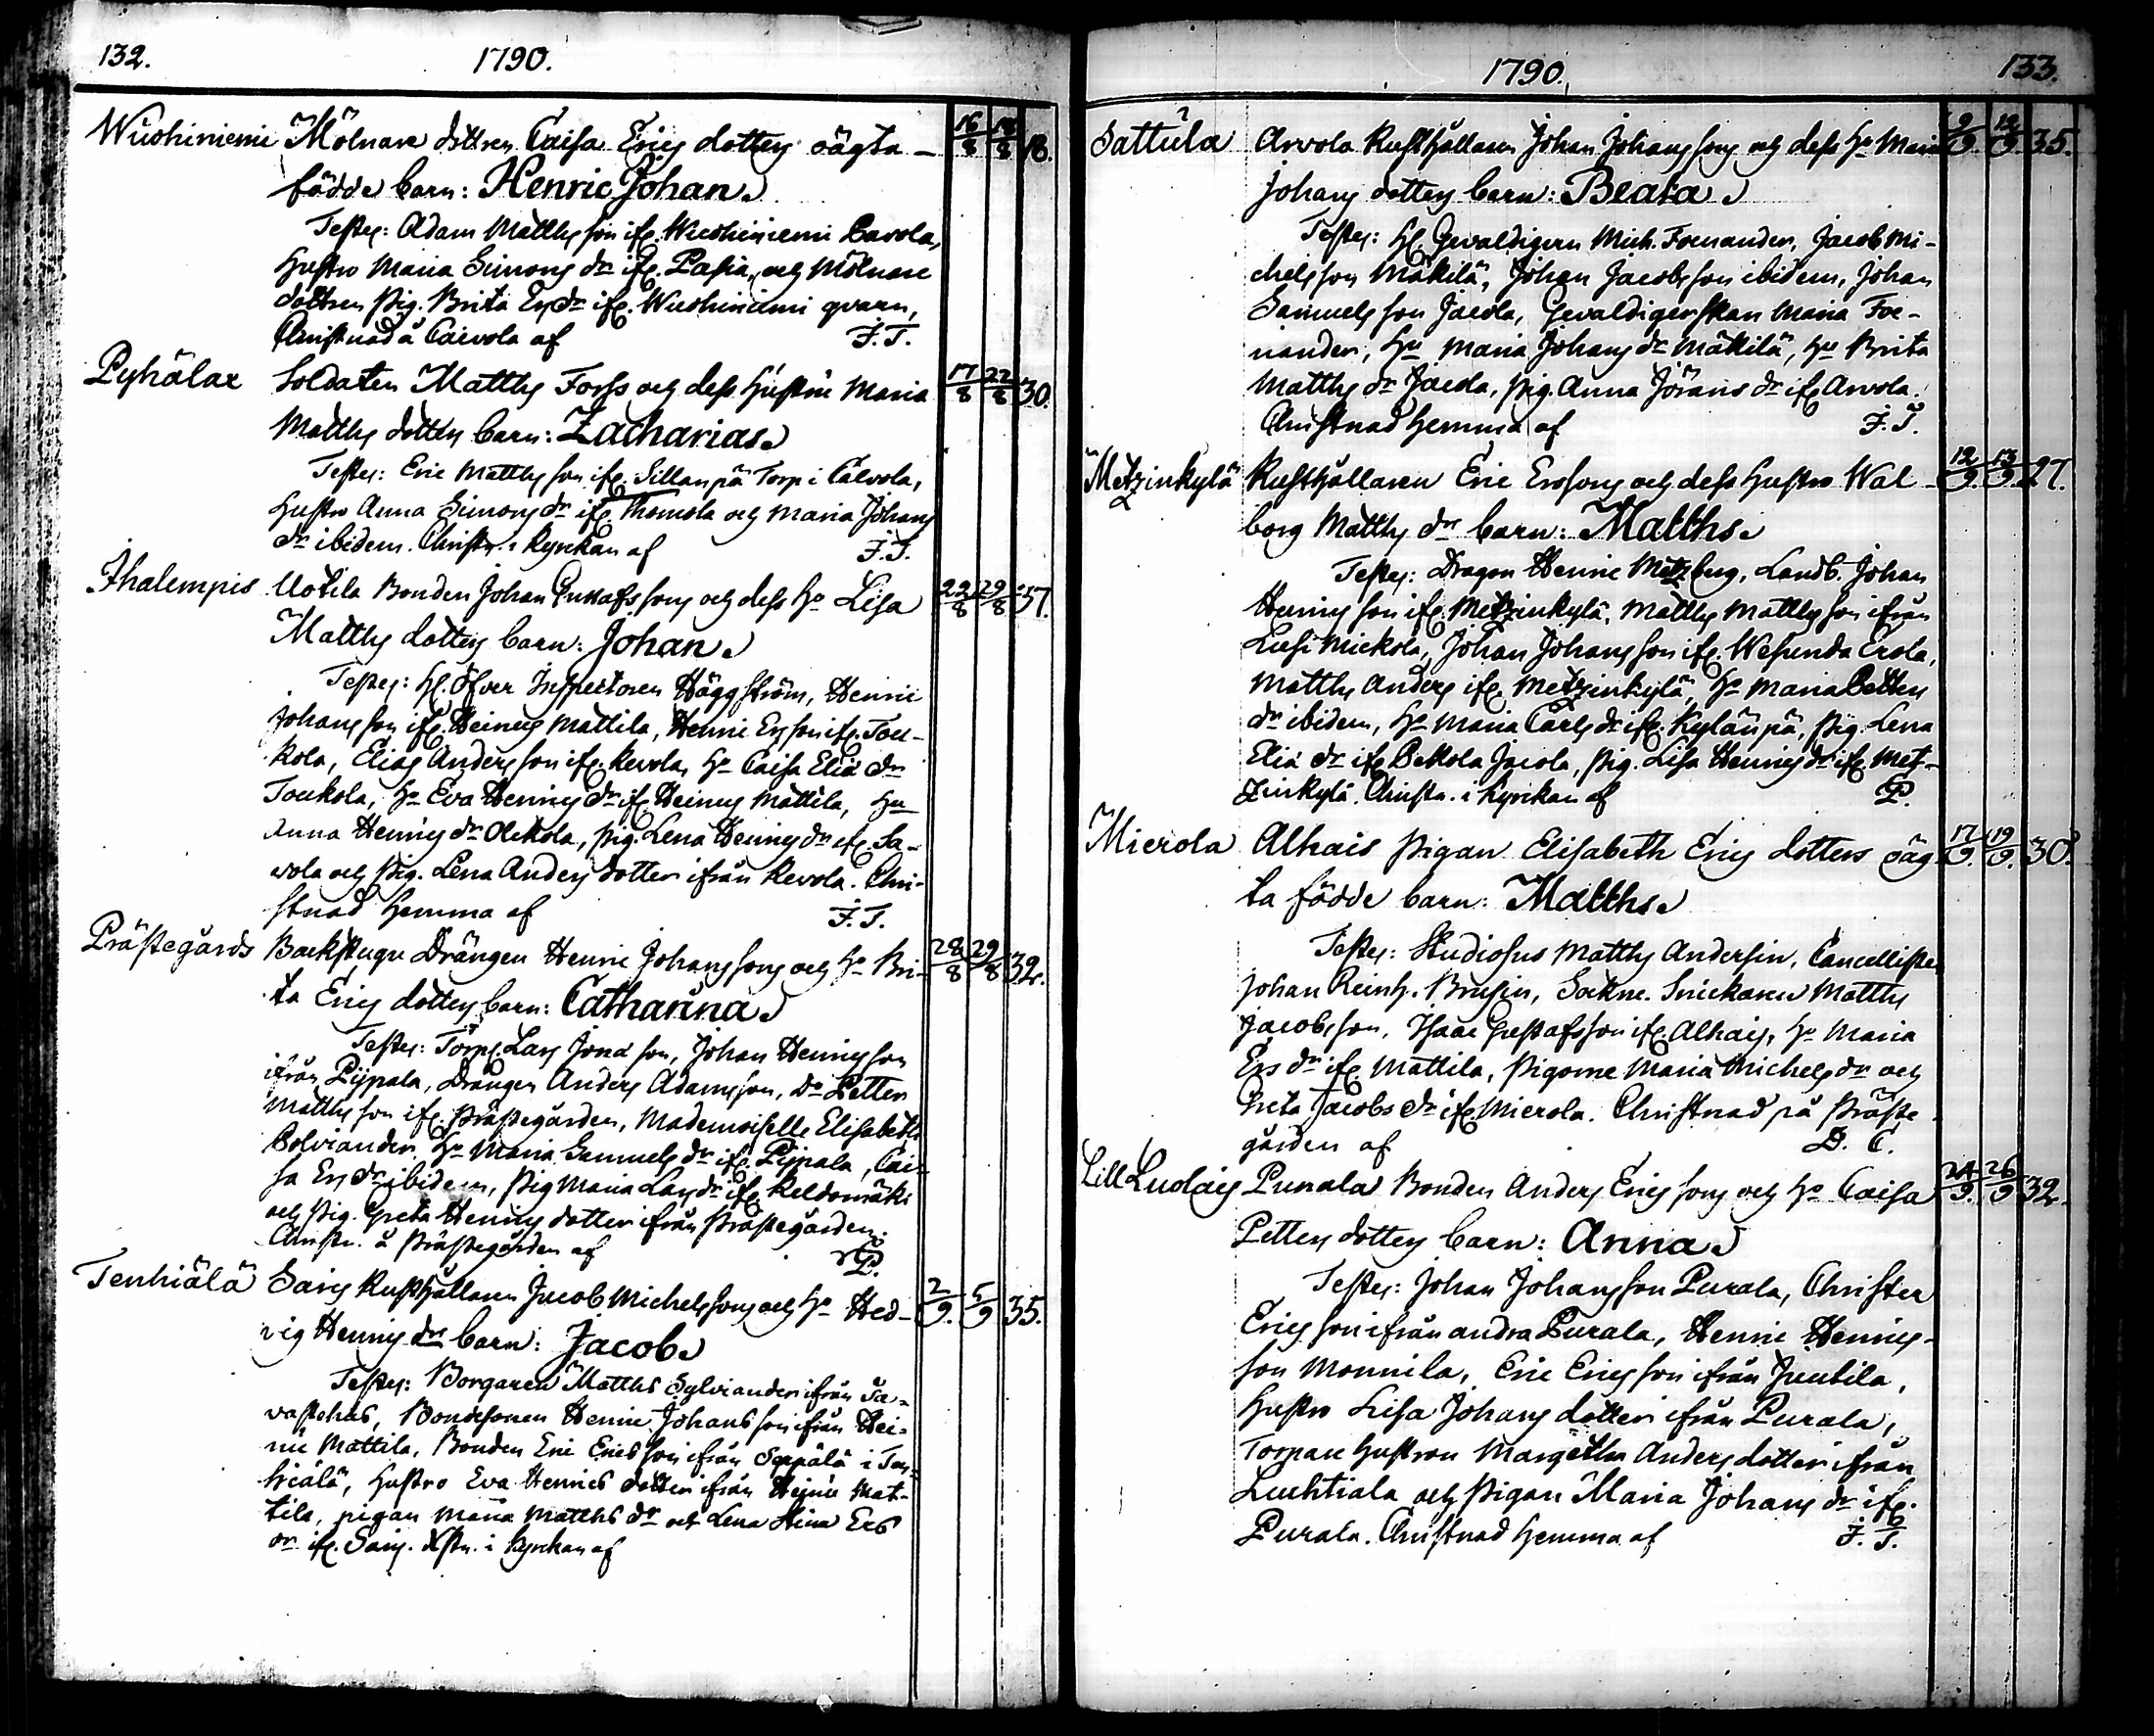 132.
1790.
Wuohiniemi Mölnare dottren Caisa Erics dotters oägta 16/8 18/8 18.
födde barn: Henric Johan.
Testes: Adam Matths son ifr. Wuohiniemi Pavola,
Hustro Maria Simons dr ifr. Pasia, och Mölnare
dottren pig. Brita Ersdr ifr. Wuohiniemi qvarn,
Christnad å Caivola af J.T.
Pyhälax Soldaten Matths Forss och dess Hustru Maria 17/8 22/8 30.
Matths dotters barn: Zacharias.
Testes: Eric Matths son ifr. Sillanpä Torp i Calvola,
Hustro Anna Simons dr ifr. Thomola och Maria Johans
dr ibidem. Christn. i Kyrckan af J.T.
Ihalempis Uotila Bonden Johan Gustafs sons och dess Ho Lisa 22/8 29/8 37.
Matths dotters barn: Johan.
Testes: Hl. Öfver Inspectoren Häggström, Henric
Johans son ifr. Heinus Mattila, Henric Ersson ifr. Tou-
kola, Elias Anders son ifr. Revola, Ho Caisa Eliæ dr
Toukola, Ho Eva Henrics dr ifr Heinus Mattila, Hu
Anna Henrics dr Ackola, pig. Lena Henrics dr ifr. Sa-
vola och pig. Lena Anders dotter ifrån Revola. Chri-
stnad hemma af J.T.
Prästegårds Backstugu Drängen Henric Johans sons och Ho Bri- 28/8 29/8 32.
ta Erics dotters barn: Catharina.
Testes: Torp. Lars Jonæ son, Johan Henrics son
ifrån Pijpala, Drängen Anders Adamsson, Do Petter
Matths son ifr. Prästegården, Mademoiselle Elisabeth
Polviander, Ho Maria Samuels dr ifr. Pijpala, Cai-
sa Ers dr ibidem, pig Maria Lars dr ifr. Keldomäki
och pig. Greta Henrics dotter ifrån Prästegården.
Christn. å Prästegården af P.
Tenhiälä Sairs Rusthållaren Jacob Michels sons och Ho Hed- 2/9. 5/9 35.
vig Henrics drs barn: Jacob.
Testes: Borgaren Matths Sylviander ifrån Ta-
vastehus, Bondesonen Henric Johans son ifrån Hei-
nu Mattila, Bonden Eric Erics son ifrån Seppälä i Ten-
hiälä, Hustro Eva Henrics dotter ifrån Heinu Mat-
tila, pigan Maria Matths dr och Lena Stina Ers
dr ifr. Sairs. Xstn. i Kyrckan af
1790.
133.
Sattula Arvola Rusthållaren Johan Johans sons och dess Ho Maria 9/9. 12/9. 35.
Johans dotters barn: Beata.
Testes: Hl. Gevaldigern Mich. Foenander, Jacob Mi-
chels son Mäkilä, Johan Jacobs son ibidem, Johan
Samuels son Jacola, Gevaldigerskan Maria Foe-
nander, Hu Maria Johans dr Mäkilä, Hu Brita
Matths dr Jacola, pig. Anna Jörans dr ifr Arvola.
Christnad hemma af J.T.
Metzinkylä Rusthållaren Eric Ersons och dess Hustro Wal- 12/9. 13/9. 27.
borg Matths drs barn: Matths.
Testes: Dragon Henric Metzberg, Landb. Johan
Henrics son ifr. Metzinkylä, Matths Matths son ifrån
Mickola, Johan Johans son ifr. Wesunda Erola,
Matths Anders ifr. Metzinkylä, Ho Maria Petters
dr ibidem, Ho Maria Carls dr ifr. Kylänpä, pig. Lena
Eliæ dr ifr Pekola Jacola, pig. Lisa Henrics dr ifr. Met-
zinkylä. Christn. i Kyrckan af P.
Mierola Alhais pigan Elisabeth Erics dotters oäg 17/9. 19/9. 30.
ta födde barn: Matths.
Testes: Studiosus Matths Andersin, Cancellisten
Johan Reinh. Brusin, Sockne Snickaren Matths
Jacobs son, Isaac Gustafs son ifr. Alhais, Ho Maria
Ers dr ifr. Mattila, Pigorne Maria Michels dr och
Greta Jacobs dr ifr Mierola. Christnad på Präste-
gården af D. C.
Lill Luolais Purala Bonden Anders Erics sons och Ho Caisa 24/9. 26/9 32.
Petters dotters barn: Anna.
Testes: Johan Johans son Purala, Christer
Erics son ifrån andra Purala, Henric Henrics-
son Monnila, Eric Erics son ifrån Juutila,
Hustro Lisa Johans dotter ifrån Purala,
Torpare hustron Margetha Anders dotter ifrån
Luchtiala och Pigan Maria Johans dr ifr.
Purala. Christnad hemma af J.T.